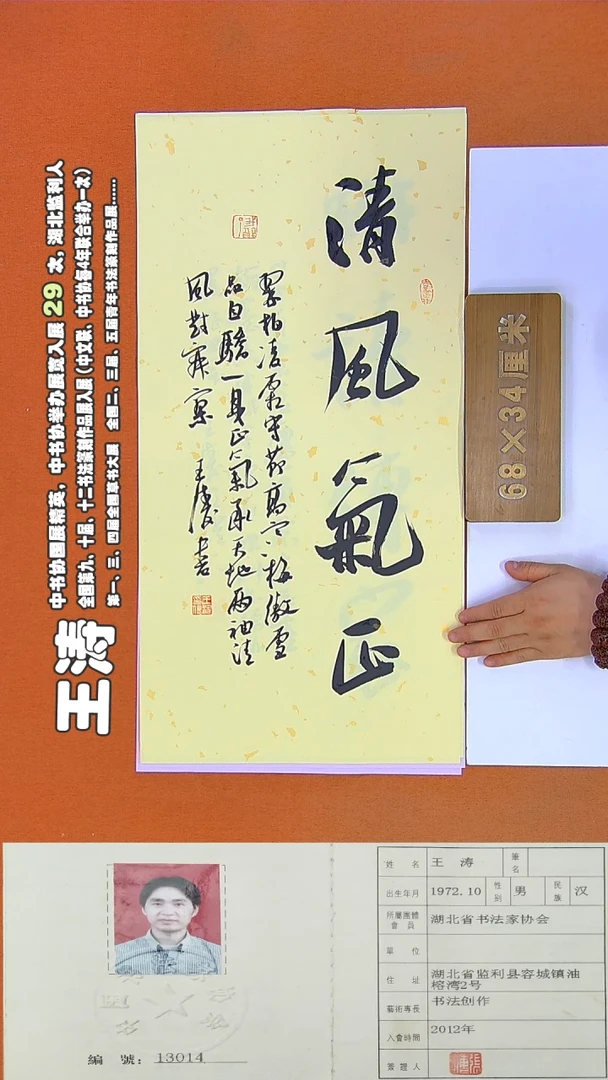 清風氣正
翠柏凌霜守節高寒梅傲雪
品自一身正氣承天地兩袖清
風對寂 王濤書
68×34厘米
王涛
中书协国展精英，中书协举办展赛入展 29 次，湖北监利人
全国第九、十届、十二书法篆刻作品展入展（中文联、中书协每4年联合举办一次）
第一、三、四届全国书法大展 全国二、三届、五届青年书法篆刻作品展……
編 號：13014
姓 名 王 涛 筆名
出生年月 1972.10 性別 男 民族 汉
所屬團體會員 湖北省书法家协会
單 位
住 址 湖北省监利县容城镇油榨湾2号
藝術專長 书法创作
入會時間 2012年
簽證人